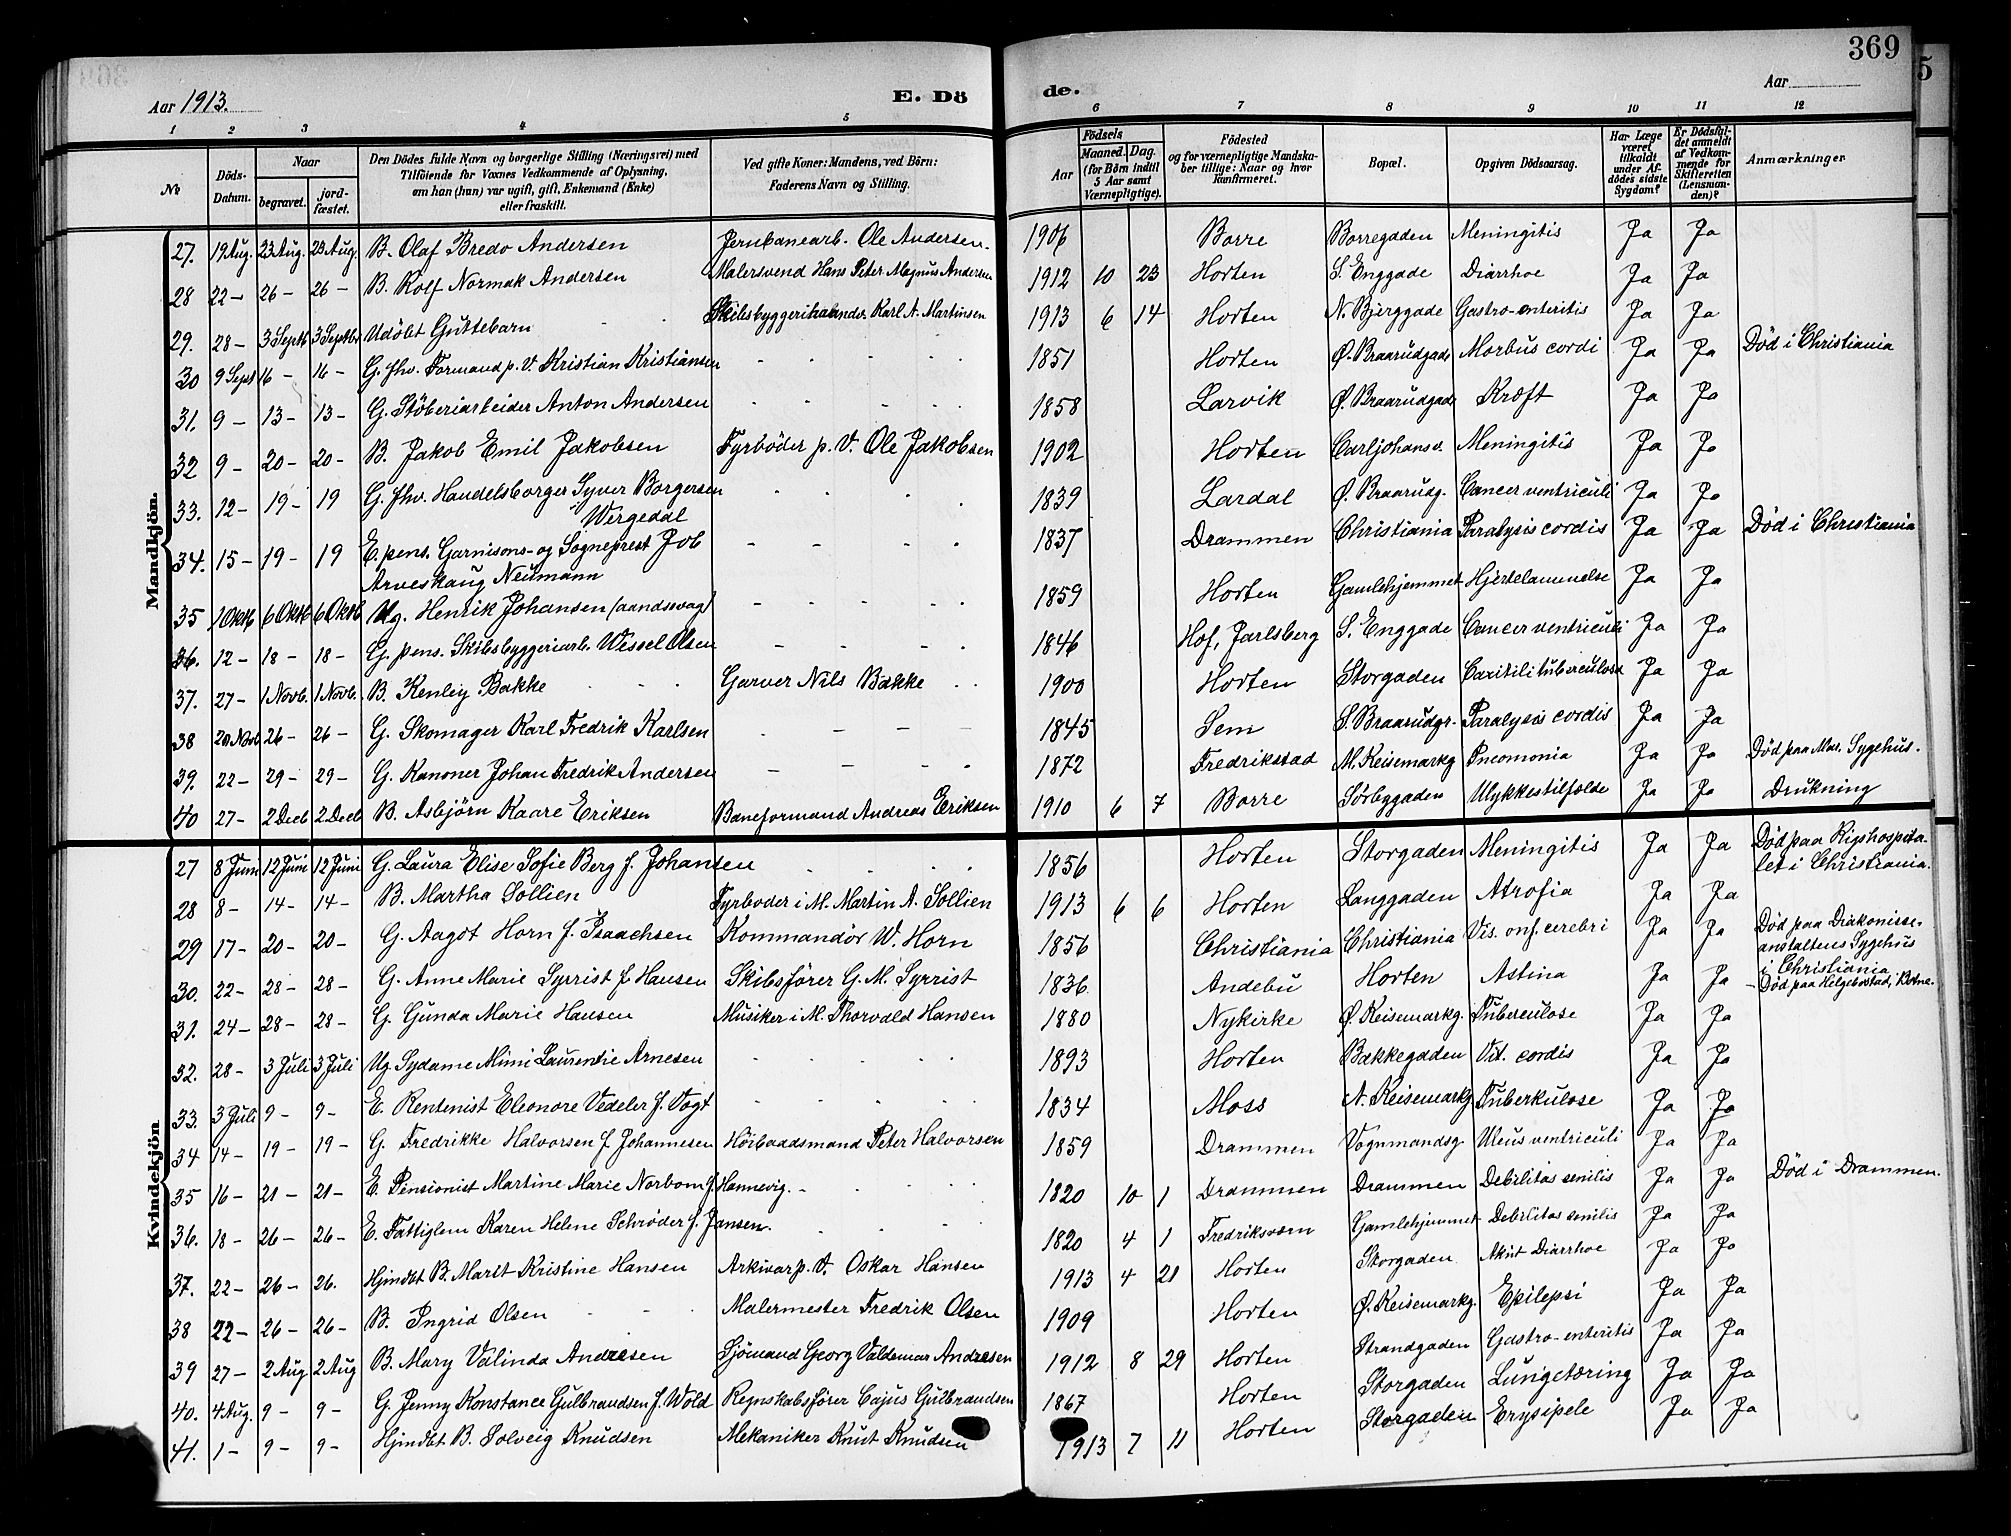 369
5
Aar 1913.
E. Dö
de.
Aar
1 2 3 4 5 6 7 8 9 10 11 12
No
Döds-Datum.
Naar
begravet.
jord-fæstet.
Den Dödes fulde Navn og borgerlige Stilling (Næringsvei) med
Tilföiende for Voxnes Vedkommende af Oplysning,
om han (hun) var ugift, gift, Enkemand (Enke)
eller fraskilt.
Ved gifte Koner: Mandens, ved Börn:
Faderens Navn og Stilling.
Aar
Födsels
Maaned. Dag.
(for Börn indtil 5 Aar samt Værnepligtige).
Födested
og for værnepligtige Mandska-
ber tillige: Naar og hvor
konfirmeret.
Bopæl.
Opgiven Dödsaarsag.
Har Læge været tilkaldt under Af-dödes sidste Sygdom?
Er Dödsfal-det anmeldt af Vedkom-mende for Skifteretten (Lensman-den)?
Anmærkninger
Mandkjön.
27. 19 Aug. 23 Aug. 23 Aug. B. Olaf Bredo Andersen Jernbanearb. Ole Andersen. 1906 Borre Borregaden Meningitis Ja Ja
28 22 – 26 – 26 – B. Rolf Normak Andersen Malersvend Hans Peter Magnus Andersen 1912 10 23 Horten S. Enggade Diarrhoe Ja Ja
29. 28 – 3 Septb 3 Septbr Udöbt Guttebarn Skibsbyggerihaandv. Karl A. Martinsen 1913 6 14 Horten N. Bjerggade Gastro-enteritis Ja Ja
30 9 Sept 16 – 16 – G. fhv. Formand p. V. Kristian Kristiansen 1851 Horten Ø. Braarudgade Morbus cordi Ja Ja Död i Christiania
31. 9 – 13 – 13 – G. Stöberiarbeider Anton Andersen 1858 Larvik Ø. Braarudgade Kræft Ja Ja
32 9 – 20 – 20 – B. Jakob Emil Jakobsen Fyrböder p. V. Ole Jakobsen 1902 Horten Carljohansv. Meningitis Ja Ja
33. 12 – 19 – 19 G. fhv. Handelsborger Syver Borgersen
Wergedal 1839 Lardal Ø. Braarudg. Cancer ventriculi Ja Ja
34. 15 – 19 – 19 E. pens. Garnisons- og Sogneprest Job
Arveskaug Neumann 1837 Drammen Christiania Paralysis cordis Ja Ja Död i Christiania
35 1 Oktb 6 Oktb 6 Oktb Ug. Henrik Johansen (aandssvag) 1859 Horten Gamlehjemmet Hjertelammelse Ja Ja
36. 12 – 18 – 18 – G. pens. Skibsbyggeriarb. Wessel Olsen 1846 Hof, Jarlsberg S. Enggade Cancer ventriculi Ja Ja
37. 27 – 1 Novb. 1 Novb. B. Kenley Bakke Garver Nils Bakke 1900 Horten Storgaden Ja Ja
38 20 Novb 26 – 26 – G. Skomager Karl Fredrik Karlsen 1845 Sem S. Braarudgr. Paralysis cordis Ja Ja
39. 22 – 29 – 29 – G. Kanoner Johan Fredrik Andersen 1872 Fredrikstad M. Keisemarkg Pneomonia Ja Ja Död paa Mar. Sygehus.
40 27 – 2 Decb 2 Decb B. Asbjörn Kaare Eriksen Baneformand Andreas Eriksen 1910 6 7 Borre Sørbygaden Ulykkestilfælde Ja Ja Drukning
Kvindekjön
27 8 Juni 12 Juni 12 Juni G. Laura Elise Sofie Berg f. Johansen 1856 Horten Storgaden Meningitis Ja Ja Död paa Rigshospita-
let i Christiania.
28 8 – 14 – 14 – B. Martha Sollien Fyrboder i M. Martin A. Sollien 1913 6 6 Horten Langgaden Atrofia Ja Ja
29 17 – 20 – 20 – G. Aagot Horn f. Isaachsen Kommandör W. Horn 1856 Christiania Christiania Vis. cerebri Ja Ja Död paa Diakonisse-
anstaltens Sygehus
i Christiania
30. 22 – 28 – 28 – G. Anne Marie Syrrist f Hansen Skibsförer G. M. Syrrist 1836 Andebu Horten Astma Ja Ja – Död paa Helgebostad, Botne.
31. 24 – 28 – 28 – G. Gunda Marie Hansen Musiker i M. Thorvald Hansen 1880 Nykirke Ø. Keisemarkg. Tuberculose Ja Ja
32. 28 – 3 Juli 3 Juli Ug. Sydame Mimi Laurentie Arnesen 1893 Horten Bakkegaden Vit. cordis Ja Ja
33. 3 Juli 9 – 9 – E. Rentenist Eleonore Vedeler f. Vogt 1834 Moss N. Keisemarkg Tuberkulose Ja Ja
34 14 – 19 – 19 – G. Fredrikke Halvorsen f Johannesen Peter Halvorsen 1859 Drammen Vognmandsg. Ulcus ventriculi Ja Ja
35 16 – 21 – 21 – E. Pensionist Martine Marie Norbom f. Hannevig. 1820 10 1 Drammen Drammen Debilitas senilis Ja Ja Död i Drammen.
36. 18 – 26 – 26 – E. Fattiglem Karen Helene Schrøder f. Jansen. 1820 4 1 Fredriksværn Gamlehjemmet Debilitas senilis Ja Ja
37. 22 – 26 – 26. Hjmdöbt B. Marit Kristine Hansen Arkivar p. V. Oskar Hansen 1913 4 21 Horten Storgaden Akut Diarrhoe Ja Ja
38 22 – 26 – 26 – B. Ingrid Olsen Malermester Fredrik Olsen 1909 Horten Ø. Keisemarkg. Epilepsi Ja Ja
39 27 – 2 Aug 2 Aug B. Mary Valinda Andresen Sjömand Georg Valdemar Andresen 1912 8 29 Horten Strandgaden Gastro-enteritis Ja Ja
40. 4 Aug. 9 – 9 – G. Jenny Konstance Gulbrandsen f. Wold Regnskabsförer Cajus Gulbrandsen 1867 Horten Storgaden Lungetæring Ja Ja
41. 1 – 9 – 9 – Hjmdöbt B. Solveig Knudsen Mekaniker Knut Knudsen 1913 7 11 Horten Storgaden Erysipele Ja Ja